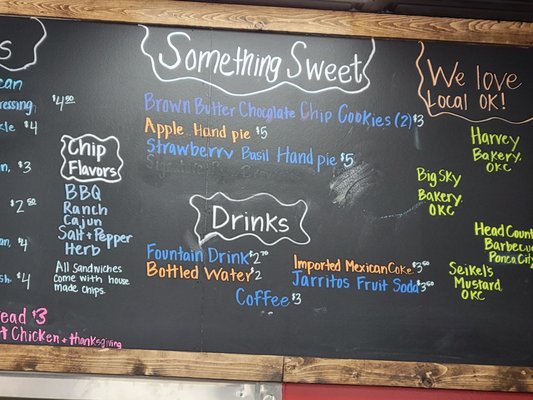 Something Sweet
Brown Butter Chocolate Chip Cookies (2) $3
Apple Hand pie $5
Strawberry Basil Hand pie $5
We love
Local OK!
Harvey
Bakery,
OKC
Big Sky
Bakery,
OKC
Head Count
Barbecue
Ponca City
Seikel's
Mustard
OKC
Drinks
Fountain Drink $2.70
Bottled Water $2
Coffee $3
Imported Mexican Coke $3.50
Jarritos Fruit Soda $3.50
$4.00
$4
$3
$2.50
$4
$4
Chip
Flavors
BBQ
Ranch
Cajun
Salt + Pepper
Herb
All Sandwiches
Come with house
made chips.
$3
Chicken + thanksgiving